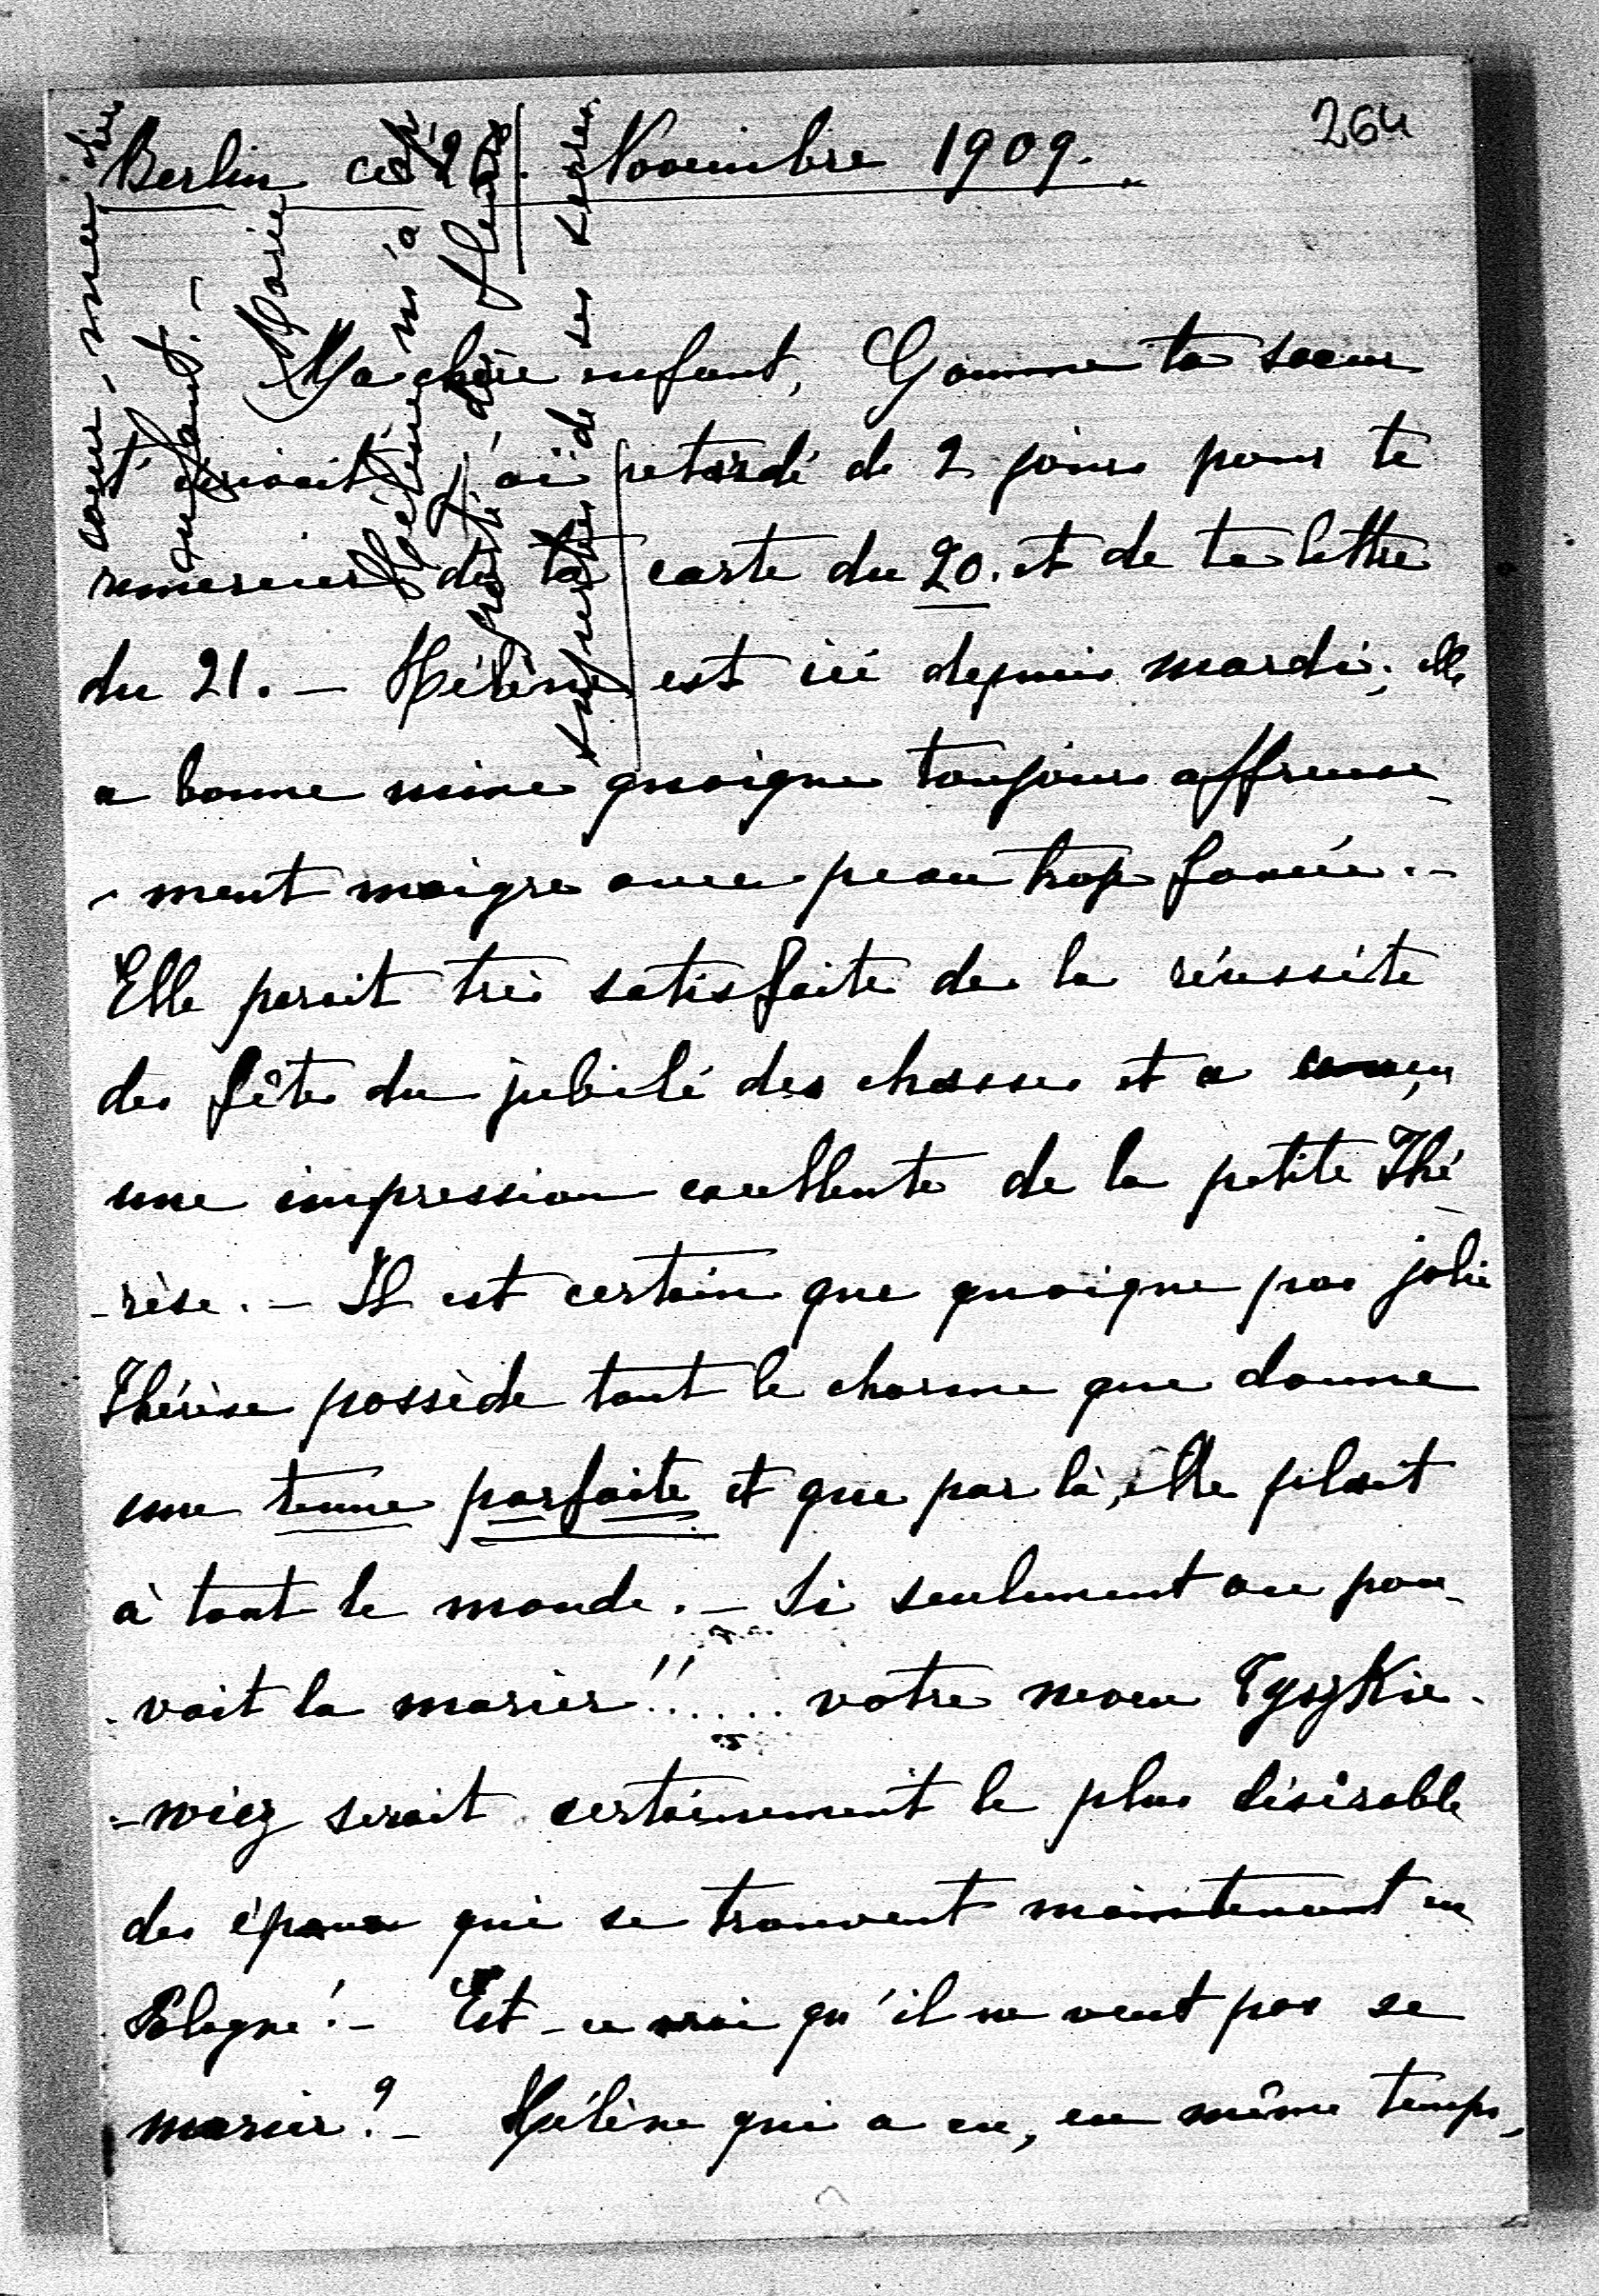 264
Berlin ce 26. Novembre 1909.
Ma chère enfant, Comme ta soeur
t'écrivait, j'ai retardé de 2 jours pour te
remercier de ta carte du 20. et de ta lettre
du 21. — Hélène est ici depuis mardi; elle
a bonne mine quoique toujours affreuse-
-ment maigre avec peau trop foncée. —
Elle parait très satisfaite de la réussite
des fêtes du jubilé des chasses et a conçu
une impression excellente de la petite Thé
-rèse. — Il est certain que quoique pas jolie
Thérèse possède tout le charme que donne
une tenue parfaite et que par là, elle plait
à tout le monde. — Si seulement on pou-
-vait la marier!!..... votre neveu Tyszkie-
-wicz serait certainement le plus désirable
des époux qui se trouvent maintenant en
Pologne! — Est-ce vrai qu'il ne veut pas se
marier? — Hélène qui a eu, en même temps,
coeur, ma chère
enfant. —
Marie
Hélène m'a
des fleurs
de ses terres